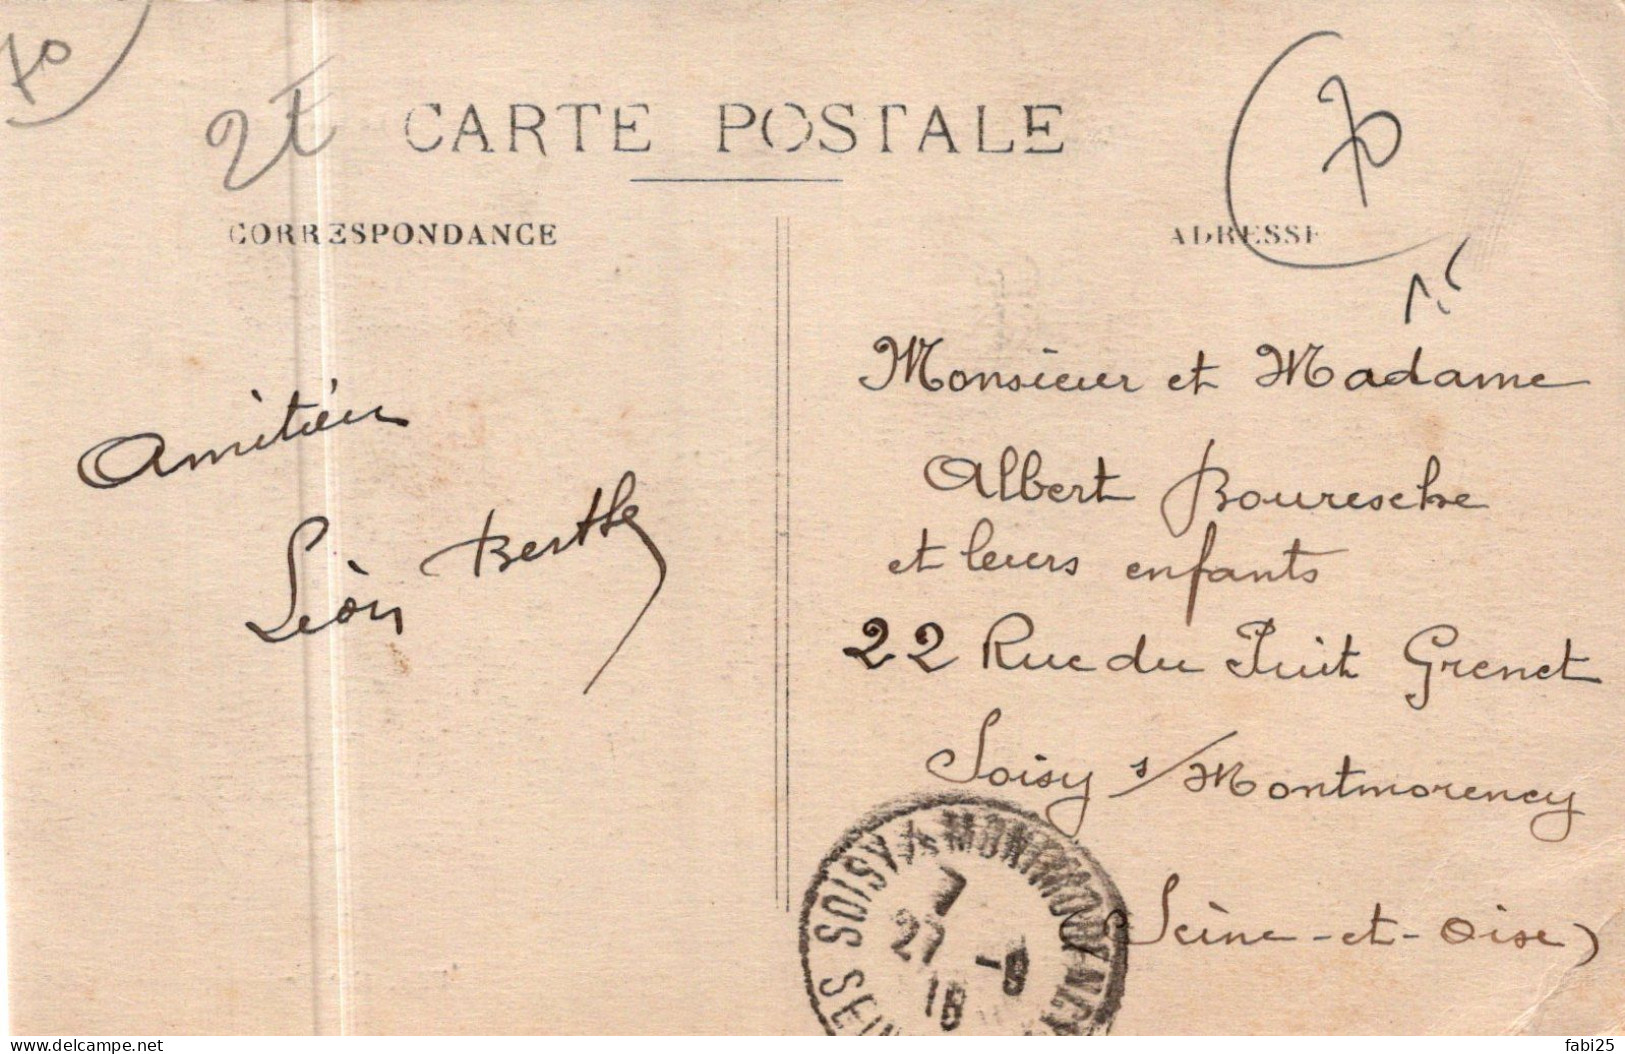 70
2t
CARTE POSTALE
70
CORRESPONDANCE
ADRESSE
Monsieur et Madame
Albert Bouresche
et leurs enfants
22 Rue du Puit Grenet
Soisy s/Montmorency
(Seine-et-Oise)
Amitiés
Léon Berthe
SOISY s MONTMORENCY
SEINE
7
27 -8
18
delcampe.net
fabi25